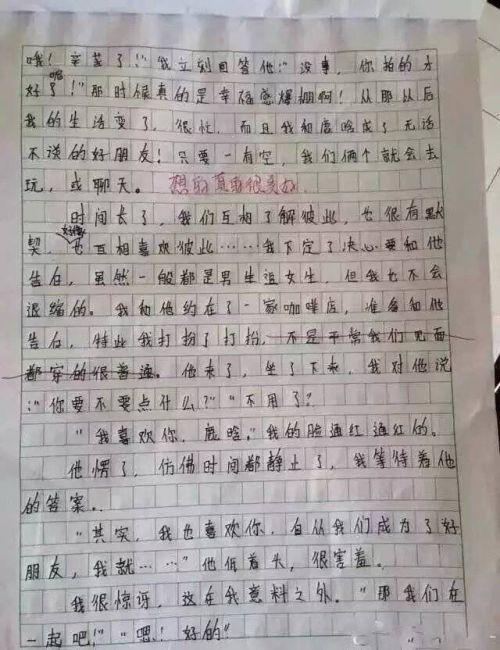 哦！辛苦了！"我立刻回答他："没事，你拍的才
好呢！"那时候真的是幸福感爆棚啊！从那从后
我的生活变了，很忙，而且我和鹿晗成了无话
不说的好朋友！只要一有空，我们俩个就会去
玩，或聊天。 想的真的很美好
时间长了，我们互相了解彼此，也很有默
契，好像也互相喜欢彼此……我下定了决心要和他
告白，虽然一般都是男生追女生，但我也不会
退缩的。我和他约在了一家咖啡店，准备和他
告白，特此我打扮了打扮，不是平常我们见面
都穿的很普通。他来了，坐了下来，我对他说
："你要不要点什么？""不用了？
"我喜欢你，鹿晗。"我的脸通红通红的。
他愣了，仿佛时间都静止了，我等待着他
的答案。
"其实，我也喜欢你，自从我们成为了好
朋友，我就……"他低着头，很害羞。
我很惊讶，这在我意料之外。"那我们在
一起吧！""嗯！好的"